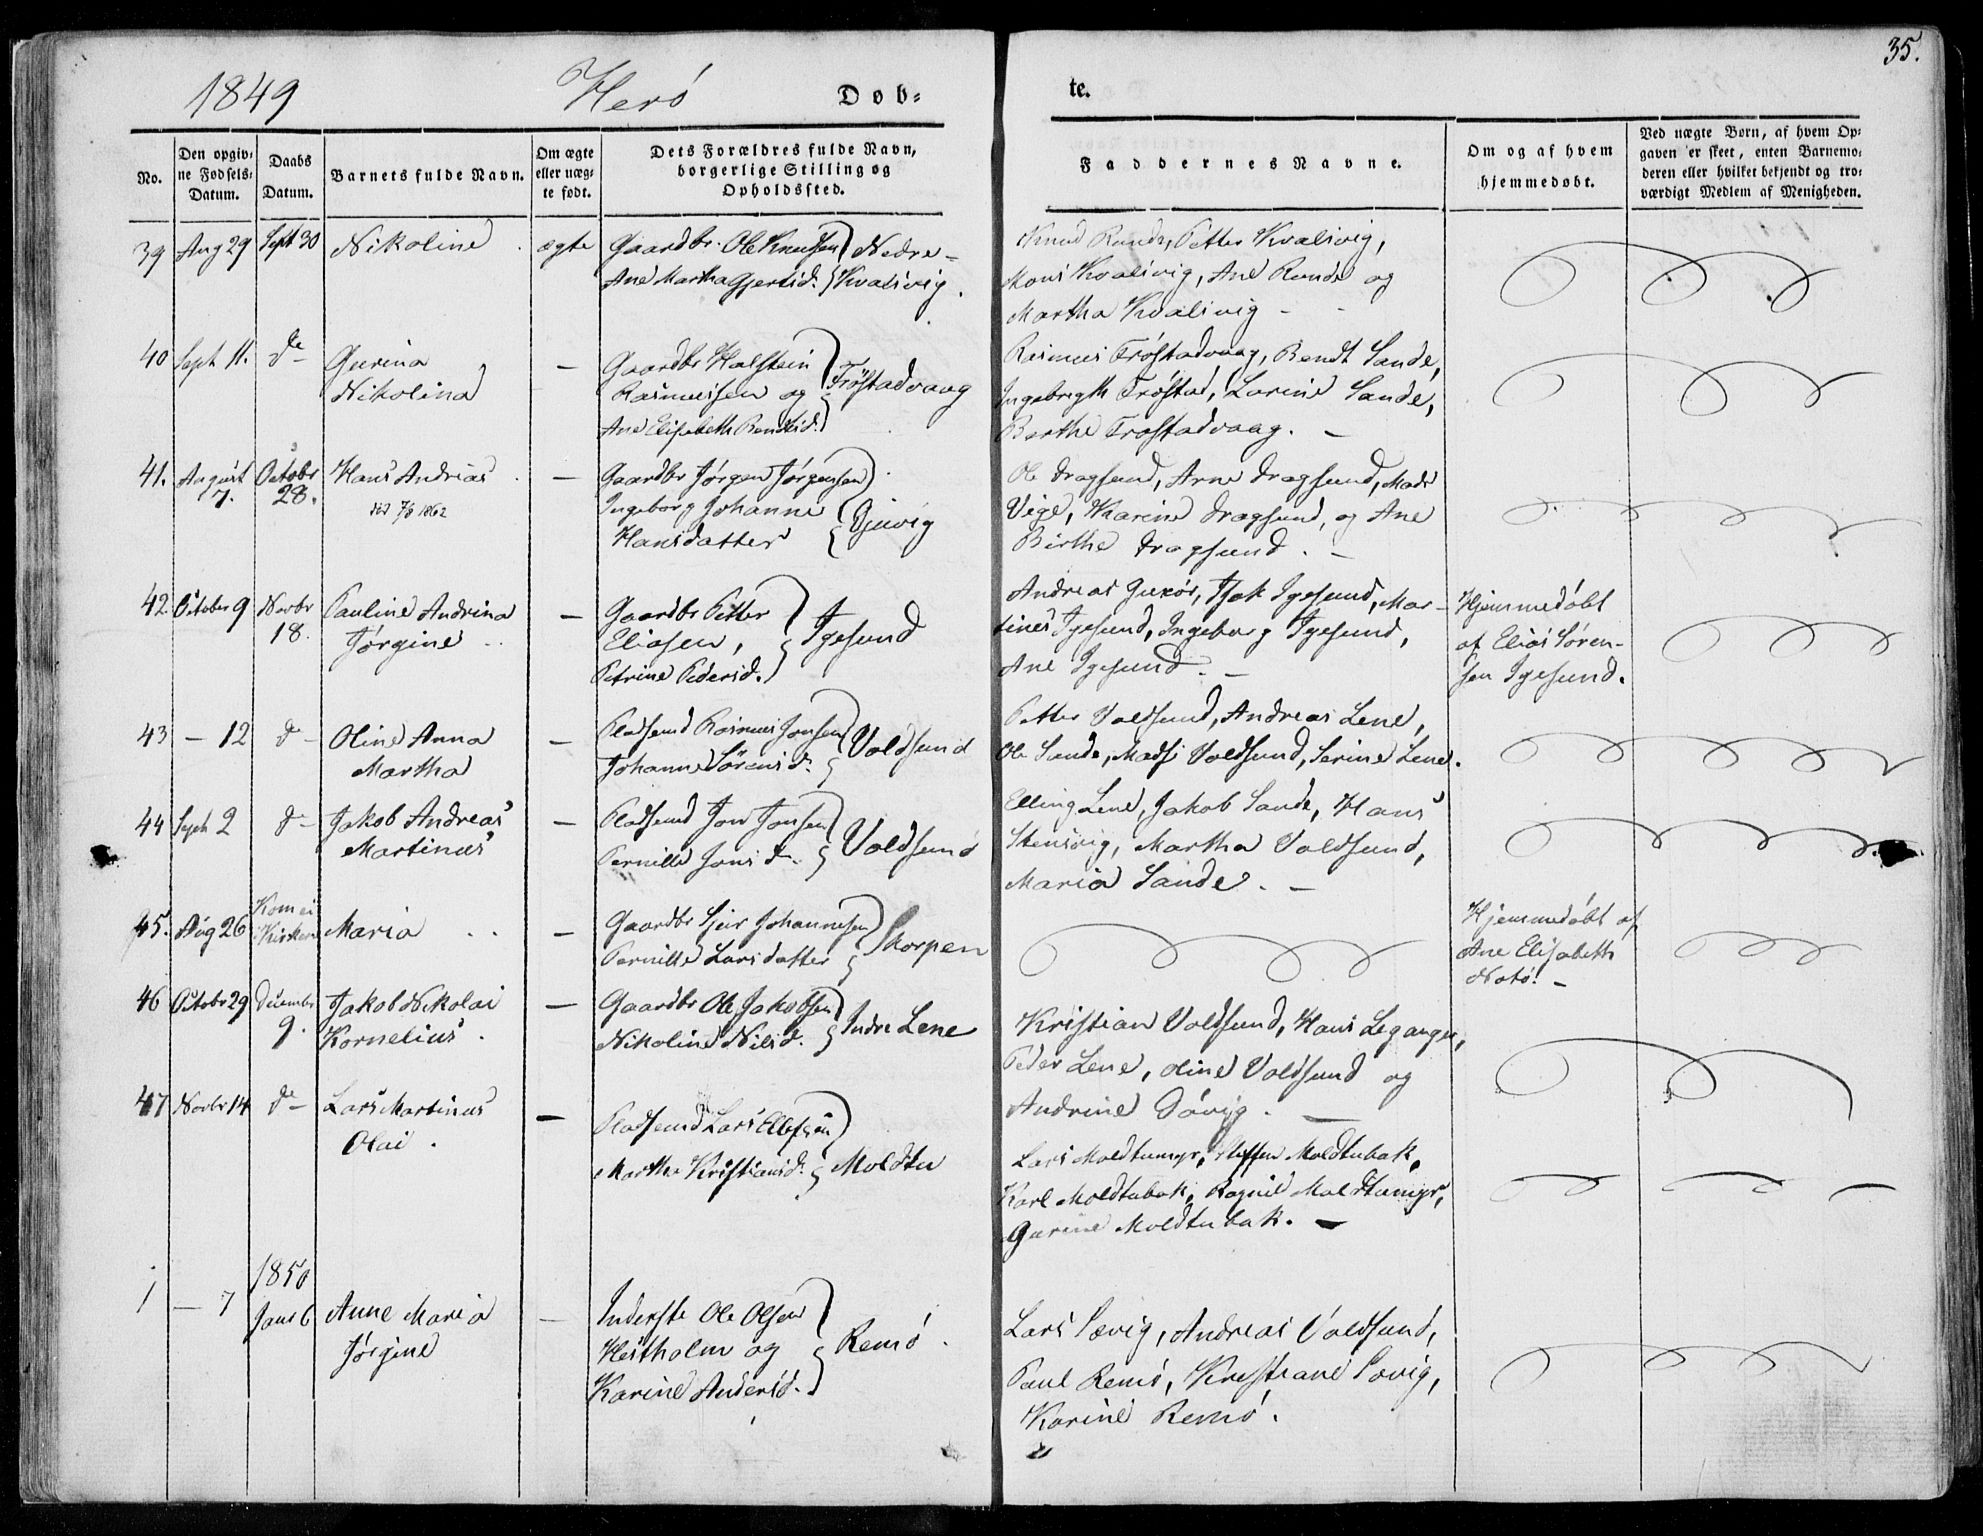 35.
1849 Herö Døb- te.
No.
Den opgiv-
ne Fødsels-
Datum.
Daabs
Datum.
Barnets fulde Navn.
Om ægte
eller uæg-
te født.
Dets Forældres fulde Navn,
borgerlige Stilling og
Opholdssted.
Faddernes Navne.
Om og af hvem
hjemmedøbt.
Ved uægte Børn, af hvem Op-
gaven er skeet, enten Barnemo-
deren eller hvilket bekjendt og tro-
værdigt Medlem af Menigheden.
39 Aug 29 Sept 30 Nikoline ægte
Gaardbr. Ole Knudsen
Ane Martha Gjertsd.
Nedre-
Kvalsvig.
Knud Runde, Petter Kvalsvig,
Mons Kvalsvig, Ane Runde og
Martha Kvalsvig -
40 Sept 11. de
Gurina
Nikolina
—
Gaardbr Halstein
Rasmussen og
Ane Elisabeth Bendtsd.
Frøstadvaag
Rasmus Frøstadvaag, Bendt Sande,
Ingebrigth Frøstad, Larine Sande,
Berthe Frøstadvaag. —
41. August
7.
October
28.
Hans Andreas
1862
—
Gaardbr Jørgen Jørgensen
Ingeborg Johanne
Hansdatter
Gjervig
Ole Dragsund, Arne Dragsund, Mads
Vige, Karine Dragsund, og Ane
Birthe Dragsund. —
42. October 9 Novbr
18.
Pauline Andrina
Jørgine
—
Gaardbr Petter
Eliasen,
Petrine Pedersd.
Igesund
Andreas Gurøs, Isak Igesund, Mar-
tines Igesund, Ingeborg Igesund,
Ane Igesund. —
Hjemmedøbt
af Elias Søren-
sen Igesund.
43 — 12 d—
Oline Anna
Martha
—
Pladsmd Rasmus Jonsen
Johanne Sørensd.
Voldsund
Petter Voldsund, Andreas Lene,
Ole Sande, Madsi Voldsund, Serine Lene.
44 Sept 2 d—
Jakob Andreas
Martinus
—
Pladsmd Jon Jonsen
Pernille Jonsd.
Voldsund
Elling Lene, Jakob Sande, Hans
Stensvig, Martha Voldsund,
Maria Sande. —
45. Aug 26
Kom ei
i Kirken
Maria
—
Gaardbr Sjur Johannesen
Pernille Larsdatter
Skorpen
Hjemmedøbt af
Ane Elisabeth
Notø. —
46 Octobr 29 Decembr
9.
Jakob Nikolai
Kornelius.
—
Gaardbr Ole Jakobsen
Nikoline Nilsd.
Indre Lene
Kristian Voldsund, Hans Leganger,
Peder Lene, Oline Voldsund og
Andrine Søvig. —
47 Novbr 14 de—
Lars Martinus
Olai.
—
Pladsmd Lars Ellefsen
Marthe Kristiansd.
Moldtu
Lars Moldtumyr, Steffen Moldtubak,
Karl Moldtubak, Ragnil Moldtumyr,
Gurine Moldtubak. —
1850
1 — 7 Janr 6
Anne Maria
Jørgine
—
Inderste Ole Olsen
Hestholm og
Karine Andersd.
Remø.
Lars Sævig, Andreas Voldsund,
Paul Remø, Kristiane Søvig,
Karine Remø.